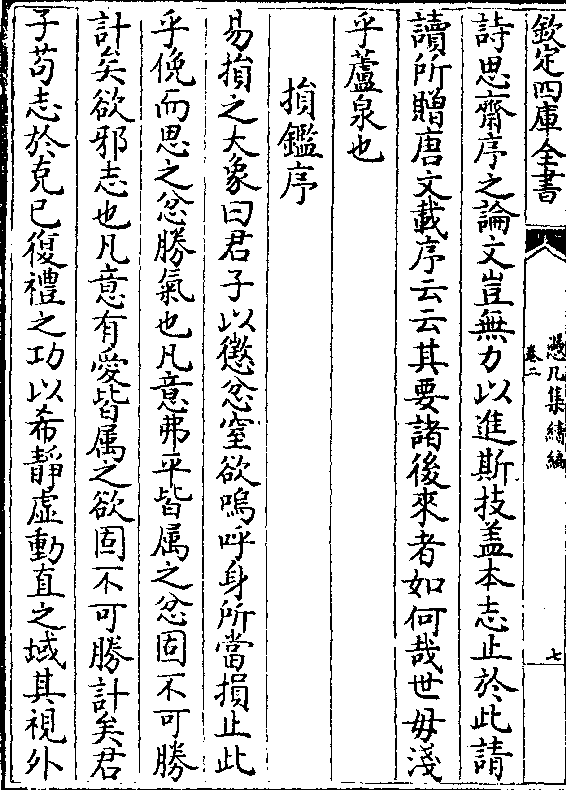 欽定四庫全書
憑几集續編
卷二
七
詩思齋序之論文豈無力以進斯技盖本志止於此請
讀所贈唐文載序云云其要諸後來者如何哉世毋淺
乎蘆泉也
損鑑序
易損之大象曰君子以懲忿窒欲嗚呼身所當損止此
乎俛而思之忿勝氣也凡意弗平皆属之忿固不可勝
計矣欲邪志也凡意有愛皆属之欲固不可勝計矣君
子苟志於克已復禮之功以希靜虛動直之域其視外